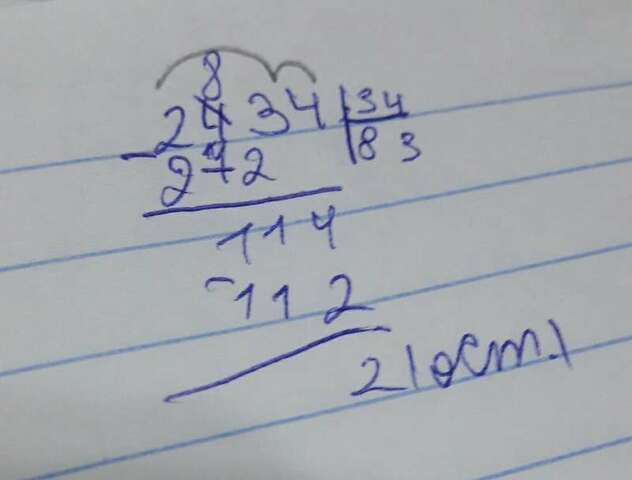 8
2434 | 34
- 272 | 83
114
- 112
2 (ост.)